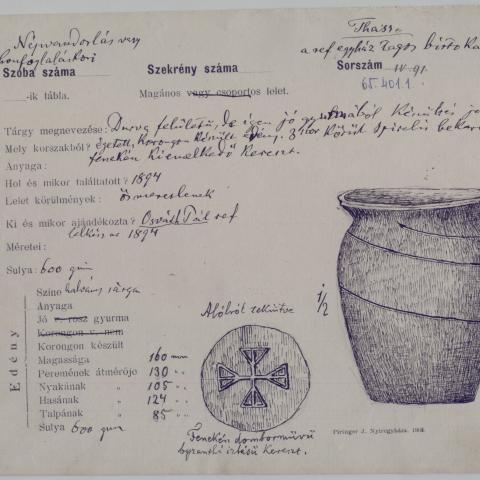 Népvándorlás vagy
honfoglaláskori
Thass
a ref egyház Tagos birtoka
Szoba száma
Szekrény száma
Sorszám IV. 91.
65.401.1.
-ik tábla.
Magános vagy csoportos lelet.
Tárgy megnevezése: Durva felületű, de igen jó gyurmából készült,
Mely korszakból? égetett, korongon készült edény. 3szor körül spirális
fenekén kiemelkedő kereszt.
Anyaga:
Hol és mikor találtatott? 1894
Lelet körülmények: ösmeretlenek
Ki és mikor ajándékozta? Osváth Pál ref
lelkész 1894
Méretei:
Sulya: 600 gm
Edény
Szine halvány sárga
Anyaga
Jó v. rosz gyurma
Korongon v. nem
Korongon készült
Magassága 160 mm
Peremének átmérője 130 "
Nyakának " 105 "
Hasának " 124 "
Talpának " 85 "
Sulya 600 gm
Alólról tekintve
1/2
Fenekén domborművű
byzanthi izlésű kereszt.
Piringer J. Nyiregyháza.